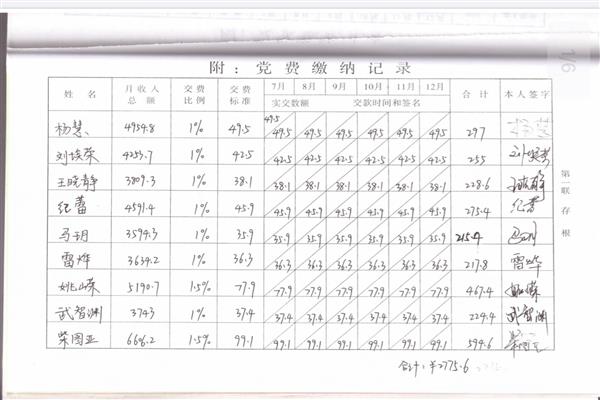 附：党费缴纳记录
姓 名 月收入总额 交费比例 交费标准 7月 8月 9月 10月 11月 12月 合 计 本人签字
实交数额 交款时间和签名
49.5
杨慧 4954.8 1% 49.5 49.5 49.5 49.5 49.5 49.5 49.5 297
刘埃荣 4253.7 1% 42.5 42.5 42.5 42.5 42.5 42.5 42.5 255
王晓静 3809.3 1% 38.1 38.1 38.1 38.1 38.1 38.1 38.1 228.6
纪蕾 4591.4 1% 45.9 45.9 45.9 45.9 45.9 45.9 45.9 275.4 纪蕾
马玥 3594.3 1% 35.9 35.9 35.9 35.9 35.9 35.9 35.9 215.4 马玥
雷烨 3634.2 1% 36.3 36.3 36.3 36.3 36.3 36.3 36.3 217.8 雷烨
姚山嵘 5190.7 1.5% 77.9 77.9 77.9 77.9 77.9 77.9 77.9 467.4
武智渊 3743 1% 37.4 37.4 37.4 37.4 37.4 37.4 37.4 224.4 武智渊
柴国亚 6606.2 1.5% 99.1 99.1 99.1 99.1 99.1 99.1 99.1 594.6
合计：¥2775.6
第一联 存根
1/6